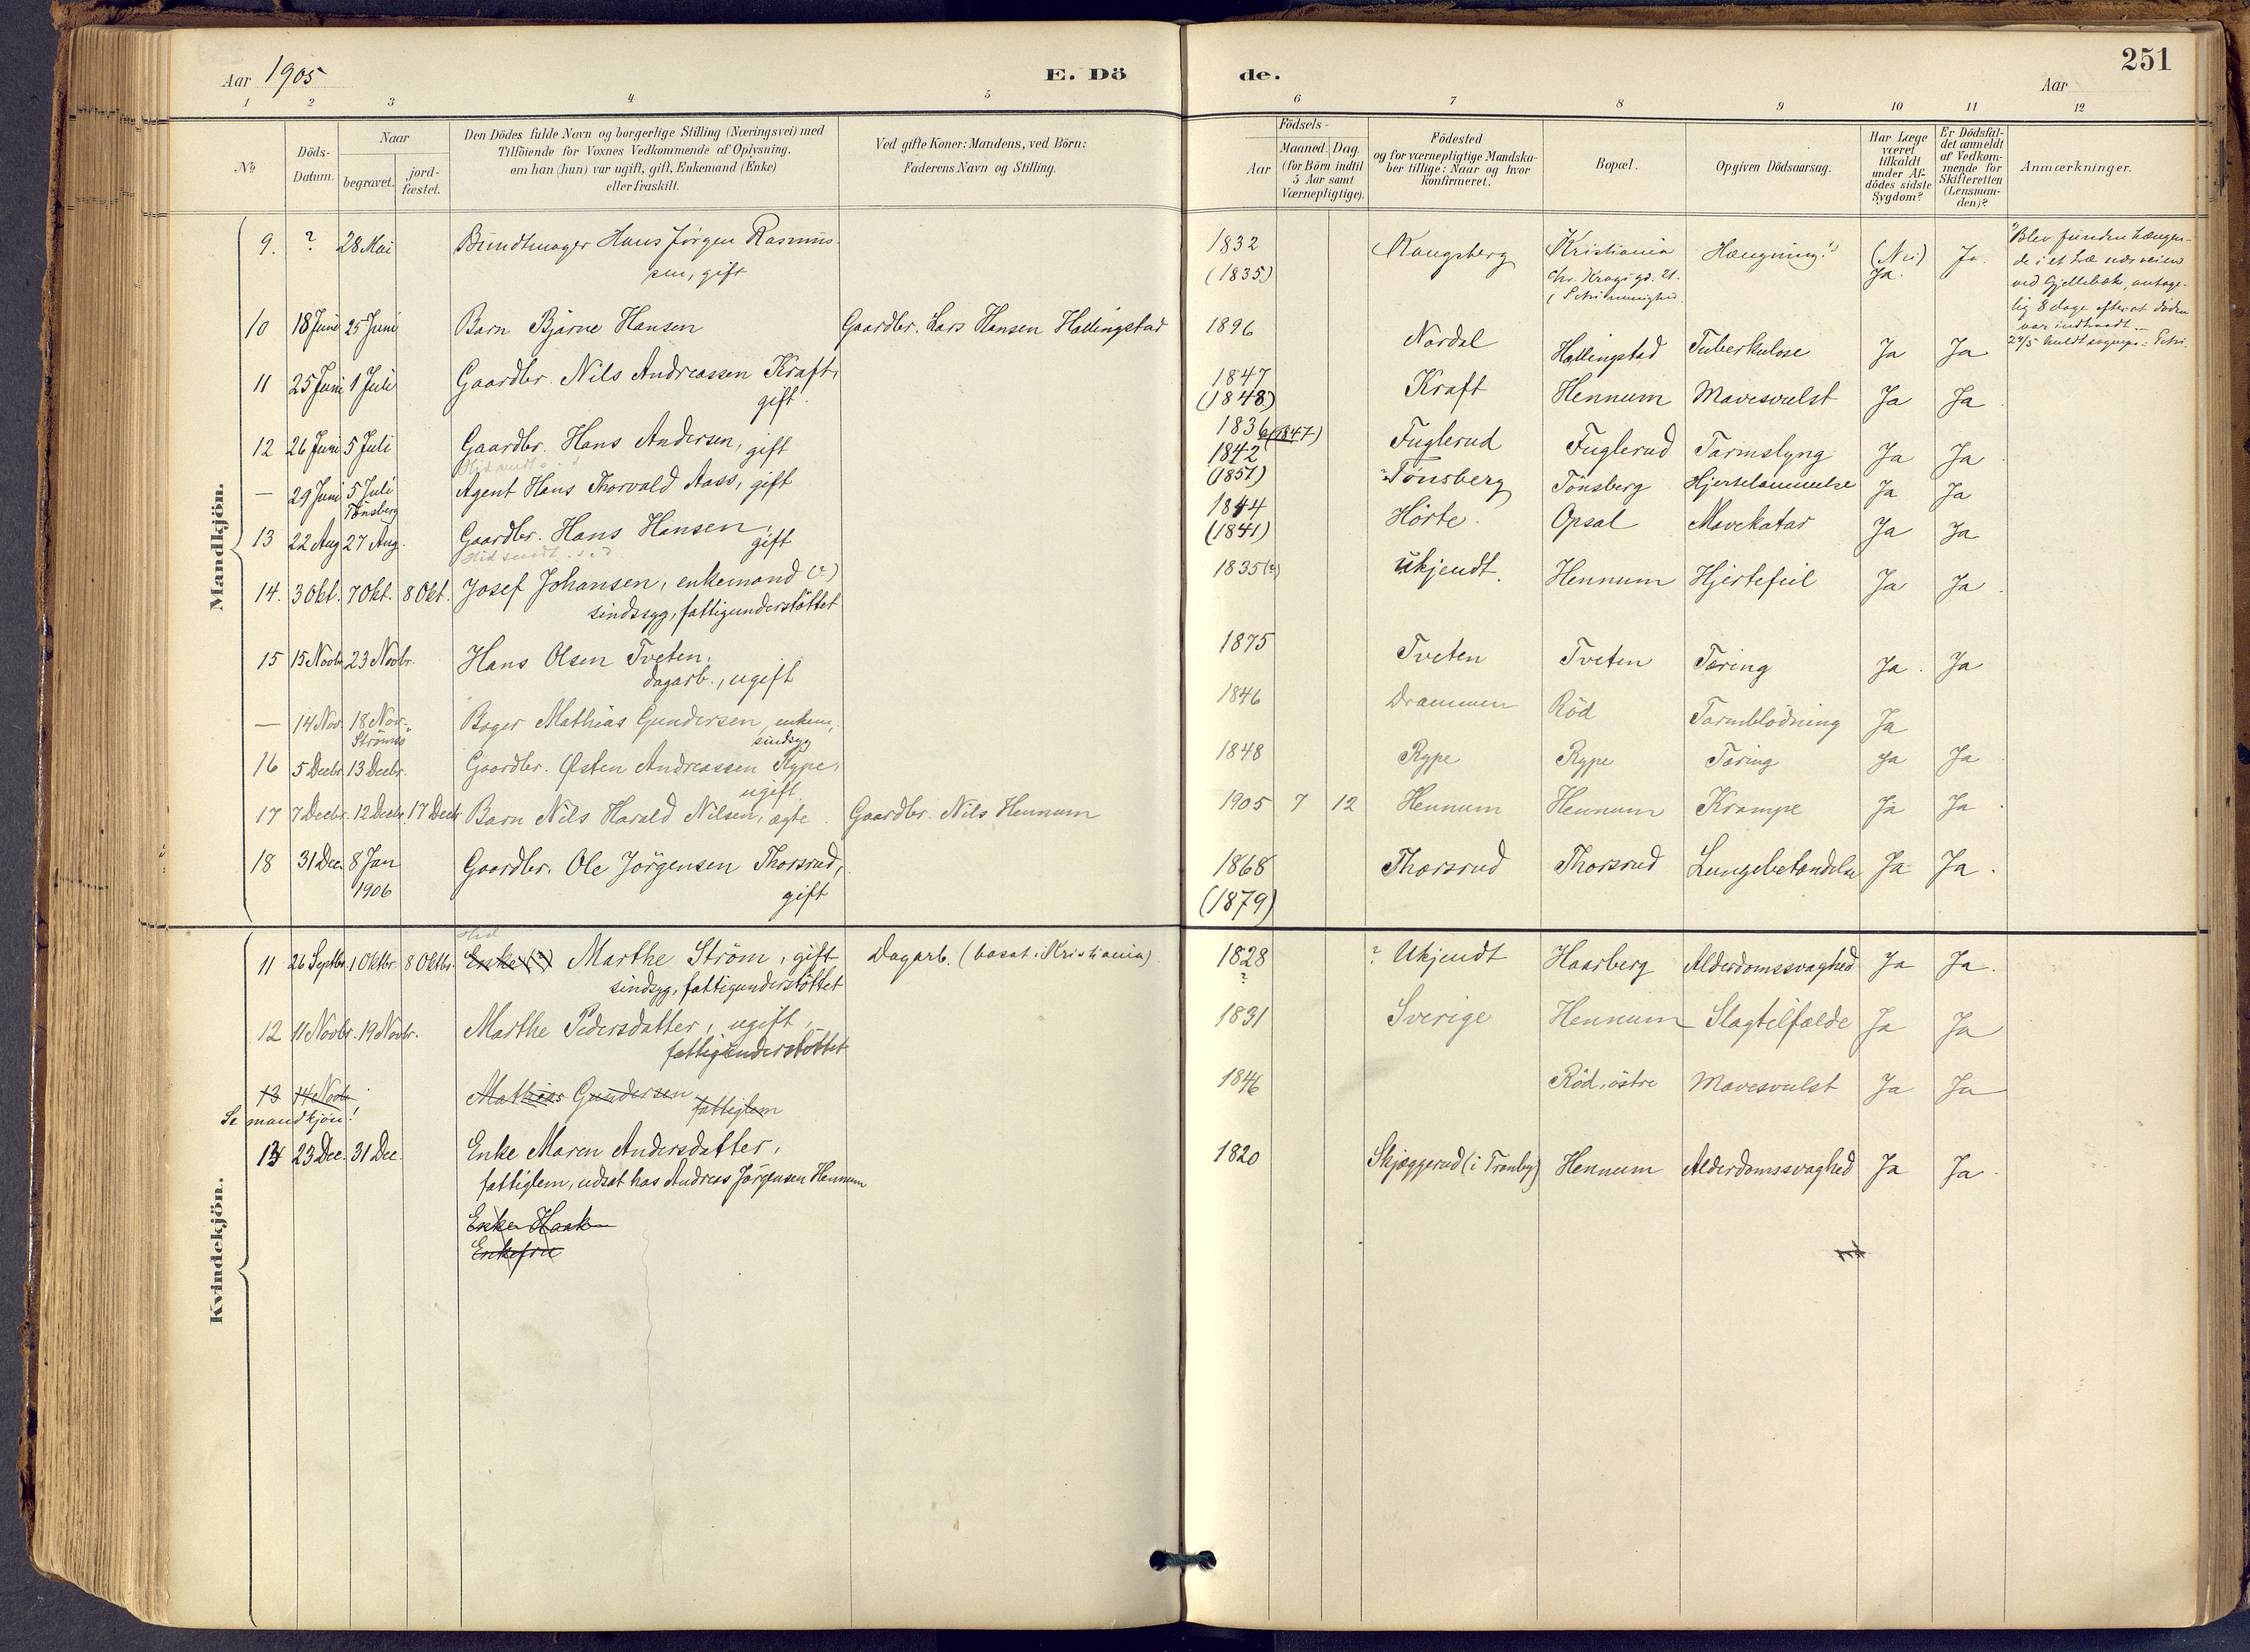 Aar 1905
E. Dö
de.
Aar
251
1 2 3 4 5 6 7 8 9 10 11 12
No
Döds-
Datum.
Naar
begravet.
jord-
fæstet.
Den Dödes fulde Navn og borgerlige Stilling (Næringsvei) med
Tilföiende for Voxnes Vedkommende af Oplysning,
om han (hun) var ugift, gift, Enkemand (Enke)
eller fraskilt.
Ved gifte Koner: Mandens, ved Börn:
Faderens Navn og Stilling.
Födsels-
Aar
Maaned. Dag.
(for Börn indtil
5 Aar samt
Værnepligtige).
Födested
og for værnepligtige Mandska-
ber tillige: Naar og hvor
konfirmeret.
Bopæl.
Opgiven Dödsaarsag.
Har Læge
været
tilkaldt
under Af-
dödes sidste
Sygdom?
Er Dödsfal-
det anmeldt
af Vedkom-
mende for
Skifteretten
(Lensman-
den)?
Anmærkninger.
Mandkjön.
9. ? 28 Mai Bundtmager Hans Jörgen Rasmus-
sen, gift
1832
(1835)
Kongsberg
Kristiania
Chr. Krogs gd. 21.
Hængning.1)
(Nei)
Ja.
Ja.
1) Blev funden hængen-
de i et træ nær veien
ved Gjellebæk, antage-
lig 8 dage efter at döden
var indtraadt.
10 18 Juni 25 Juni Barn Bjarne Hansen Gaardbr. Lars Hansen Hallingstad 1896 Nordal Hallingstad Tuberkulose Ja Ja
11 25 Juni 1 Juli Gaardbr. Nils Andreassen Kraft,
gift.
1847
(1848)
Kraft Hennum Mavesvulst Ja Ja
12 26 Juni 5 Juli Gaardbr. Hans Andersen, gift 1836 (1847) Fuglerud Fuglerud Tarmslyng Ja Ja
— 29 Juni 5 Juli
Tönsberg
Agent Hans Thorvald Aass, gift
1842
(1851)
Tönsberg Tönsberg Hjertelammelse Ja Ja
13 22 Aug 27 Aug. Gaardbr. Hans Hansen,
gift
1844
(1841)
Hörte. Opsal Mavekatar Ja Ja
14. 3 Okt. 7 Okt. 8 Okt. Josef Johansen, enkemand (?)
sindssyg, fattigunderstöttet
1835(?) Ukjendt. Hennum Hjertefeil Ja Ja
15 15 Novbr. 23 Novbr. Hans Olsen Tveten,
dagarb., ugift
1875 Tveten Tveten Tæring Ja. Ja
— 14 Nov. 18 Nov.
Strömsö
Bager Mathias Gundersen, enkem.,
sindsyg
1846 Drammen Röd Tarmblödning Ja
16 5 Decbr. 13 Decbr. Gaardbr. Østen Andreassen Rype,
ugift.
1848 Rype Rype Tæring Ja Ja
17 7 Decbr. 12 Decbr. 17 Decbr. Barn Nils Harald Nilsen, ægte. Gaardbr. Nils Hennum 1905 7 12 Hennum Hennum Krampe Ja Ja
18 31 Dec. 8 Jan
1906
Gaardbr. Ole Jörgensen Thorsrud,
gift
1868
(1879)
Thorsrud Thorsrud Lungebetændelse Ja Ja.
Kvindekjön.
11 26 Septbr. 1 Oktbr. 8 Oktbr. Enke (?) Marthe Ström, gift
sindsyg, fattigunderstöttet
Dagarb. (bosat i Kristiania)
1828
?
? Ukjendt Haarberg Alderdomssvaghed Ja Ja.
12 11 Novbr. 19 Novbr. Marthe Pedersdatter, ugift,
fattigunderstöttet
1831 Sverige Hennum Slagtilfælde Ja Ja
13 14 Novbr. Mathias Gundersen
fattiglem
Se mandkjön!
1846 Röd, östre Mavesvulst Ja Ja
13 23 Dec. 31 Dec. Enke Maren Andersdatter,
fattiglem, udsat hos Andreas Jörgensen Hennum
1820 Skjæggerud (i Tranby) Hennum Alderdomssvaghed Ja Ja
Enke Haak
Enkefru